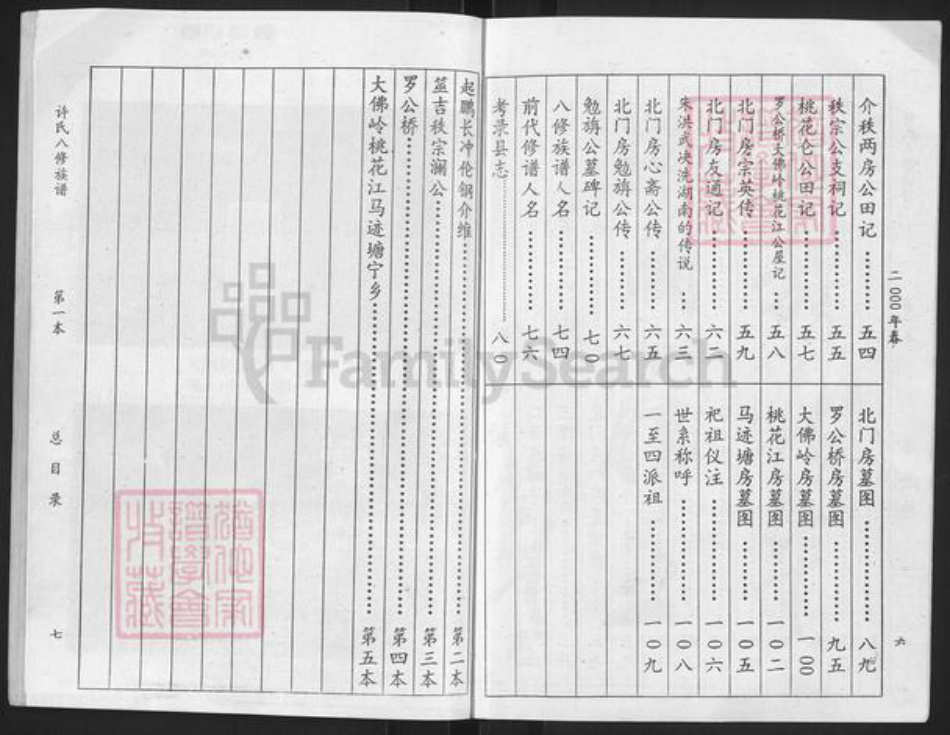 二000年春
介秩两房公田记…………五四
秩宗公支祠记…………五五
桃花仑公田记…………五七
罗公桥大佛岭桃花江公屋记…五八
北门房宗英传…………五九
北门房友通记…………六二
朱洪武决洗湖南的传说…六三
北门房心斋公传…………六五
北门房勉旃公传…………六七
勉旃公墓碑记…………七0
八修族谱人名…………七四
前代修谱人名…………七六
考录县志…………八0
北门房墓图…………八九
罗公桥房墓图…………九五
大佛岭房墓图…………一00
桃花江房墓图…………一0二
马迹塘房墓图…………一0五
祀祖仪注…………一0六
世系称呼…………一0八
一至四派祖…………一0九
六
起鹏长冲伦钢介维…………第二本
筮吉秩宗澜公…………第三本
罗公桥…………第四本
大佛岭桃花江马迹塘宁乡…………第五本
许氏八修族谱
第一本
总目录
七
FamilySearch